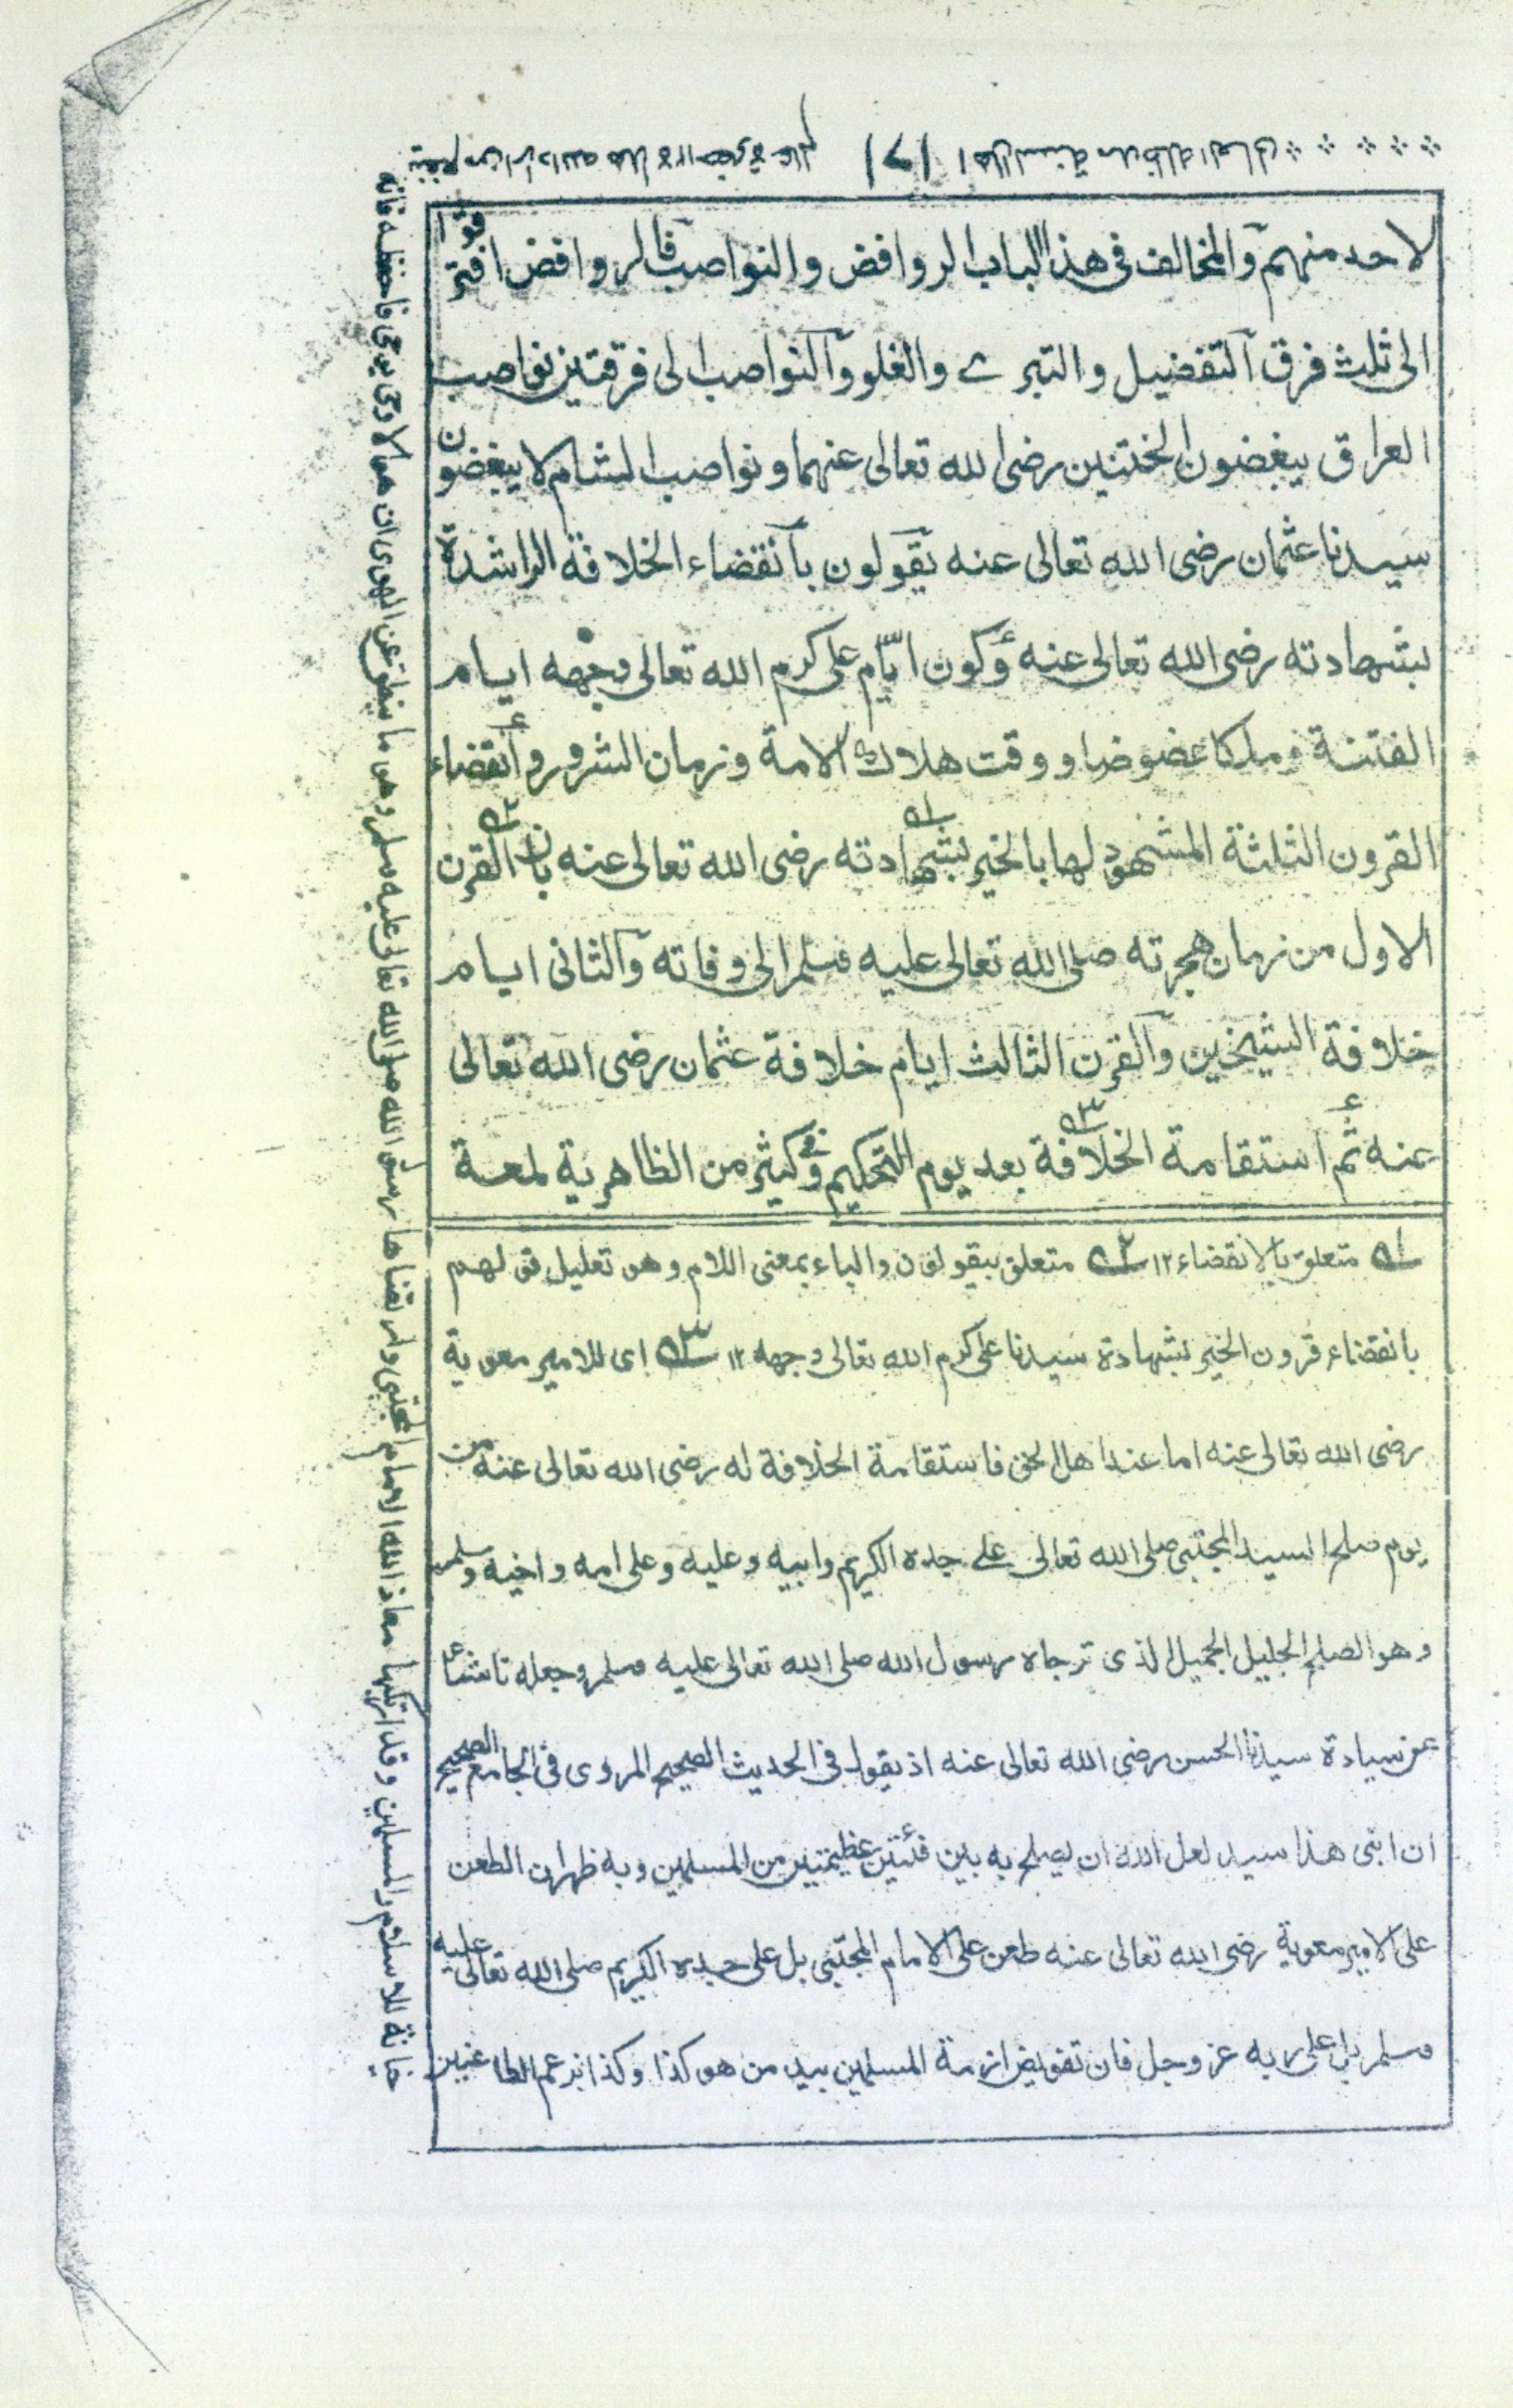 لاحد منهم والمخالف فى هذا الباب الروافض والنواصب فالروافض افترقوا
الى ثلث فرق التفضيل والتبرے والغلو والنواصب الى فرقتين نواصب
العراق يبغضون الختنين رضى الله تعالى عنهما ونواصب الشام لا يبغضون
سيدنا عثمان رضى الله تعالى عنه يقولون بانقضاء الخلافة الراشدة
بشهادته رضى الله تعالى عنه وكون ايّام على كرم الله تعالى وجهه ايام
الفتنة وملكا عضوضا ووقت هلاك الامة وزمان الشرور وانقضاء
القرون الثلثة المشهود لها بالخير بشهادته رضى الله تعالى عنه بان القرن
الاول من زمان هجرته صلى الله تعالى عليه وسلم الى وفاته والثانى ايام
خلافة الشيخين والقرن الثالث ايام خلافة عثمان رضى الله تعالى
عنه ثم استقامة الخلافة بعد يوم التحكيم وفى كثير من الظاهرية لمعة
ــه١ متعلق بالانقضاء ١٢ ــه٢ متعلق بيقولون والباء بمعنى اللام وهو تعليل قولهم
بانقضاء قرون الخير بشهادة سيدنا على كرم الله تعالى وجهه ١٢ ــه٣ اى للامير معوية
رضى الله تعالى عنه اما عند اهل الحق فاستقامة الخلافة له رضى الله تعالى عنه من
يوم صلح السيد المجتبى صلى الله تعالى على جده الكريم وابيه وعليه وعلى امه واخيه وسلم
وهو الصلح الجليل الجميل الذى ترجاه رسول الله صلى الله تعالى عليه وسلم وجعله ناشئا
عن سيادة سيدنا الحسن رضى الله تعالى عنه اذ يقول فى الحديث الصحيح المروى فى الجامع الصحيح
ان ابنى هذا سيد لعل الله ان يصلح به بين فئتين عظيمتين من المسلمين وبه ظهر ان الطعن
على الامير معوية رضى الله تعالى عنه طعن على الامام المجتبى بل على جده الكريم صلى الله تعالى عليه
وسلم بل على ربه عز وجل فان تفويض ازمة المسلمين بيد من هو كذا وكذا بزعم الطاعنين
خيانة للاسلام والمسلمين وقد ارتكبها معاذ الله الامام المجتبى وارتضاها رسول الله صلى الله تعالى عليه وسلم وهو ما ينطق عن الهوى ان هو الا وحى يوحى فاحفظه فانه